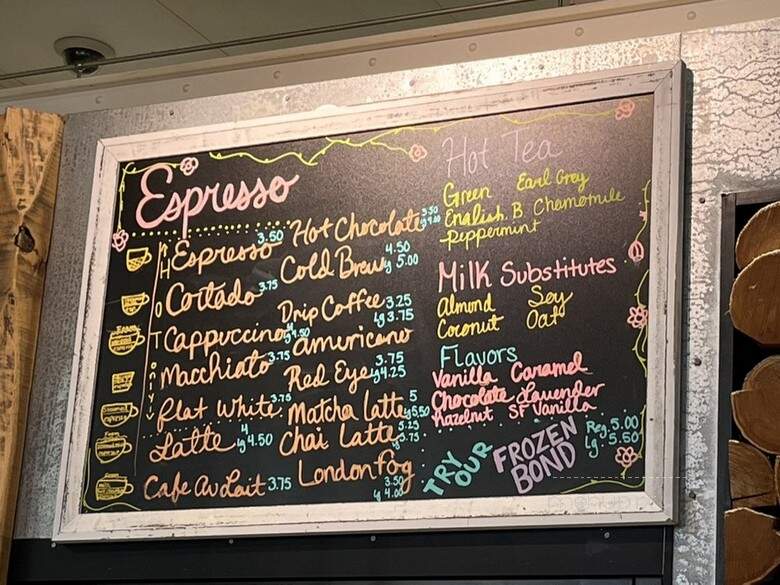 Espresso
HOT ONLY
Espresso 3.50
Cortado 3.75
Cappuccino 4 lg 4.50
Macchiato 3.75
Flat White 3.75
Latte 4 lg 4.50
Cafe Au Lait 3.75
Hot Chocolate 3.50 lg 4.00
Cold Brew 4.50 lg 5.00
Drip Coffee 3.25 lg 3.75
Americano
Red Eye 3.75 lg 4.25
Matcha Latte 5 lg 5.50
Chai Latte 5.25 lg 5.75
London Fog 3.50 lg 4.00
Hot Tea
Green Earl Grey
English. B. Chamomile
Peppermint
Milk Substitutes
Almond Soy
Coconut Oat
Flavors
Vanilla Caramel
Chocolate Lavender
Hazelnut SF Vanilla
TRY OUR
FROZEN BOND
Reg. 5.00
lg. 5.50